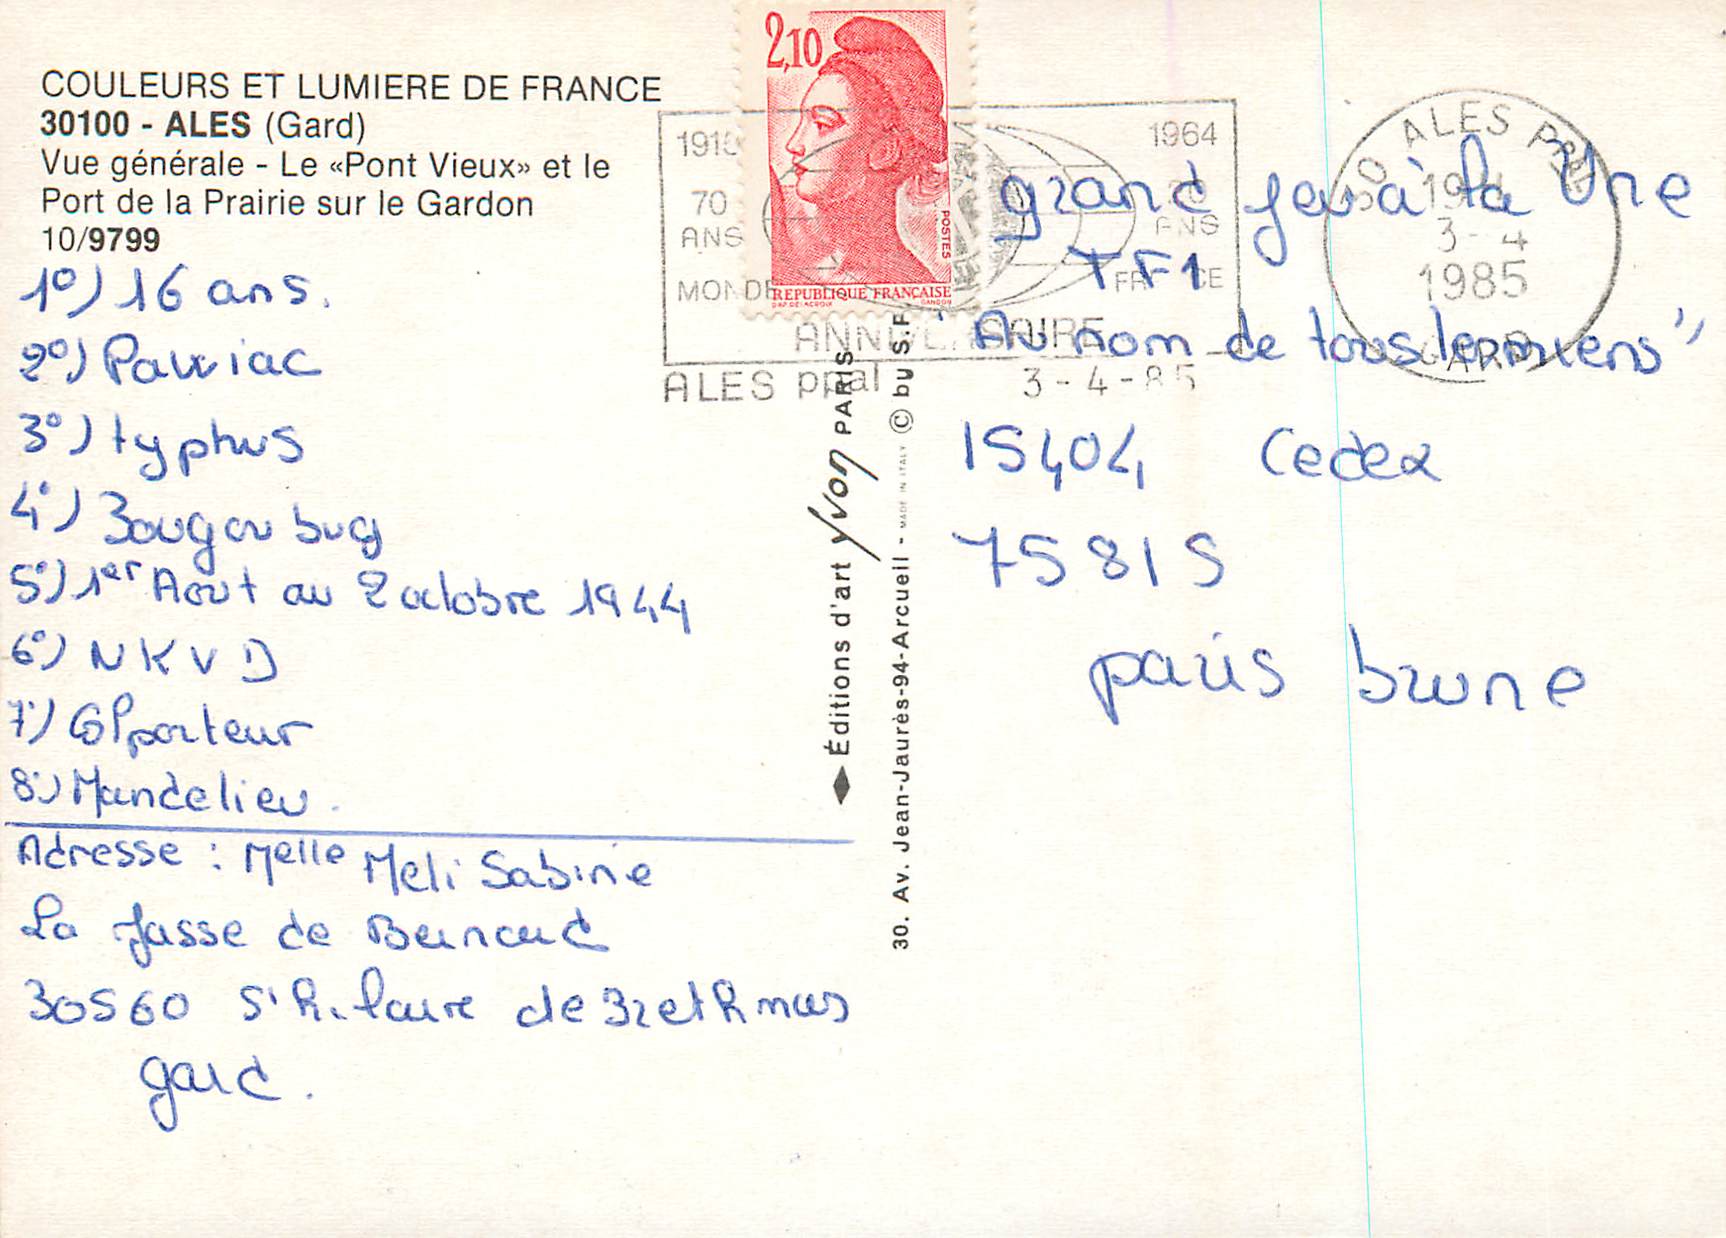 COULEURS ET LUMIERE DE FRANCE
30100 - ALES (Gard)
Vue générale - Le «Pont Vieux» et le
Port de la Prairie sur le Gardon
10/9799
1°) 16 ans.
2°) Pawiac
3°) typhus
4°)
5°) 1er Aout au 2 octobre 1944
6°) NKVD
7°) Colporteur
8°) Mandelieu.
Adresse : Melle Meli Sabine
La Jasse de Bernard
30560 St hilaire de Brethmas
gard.
2,10
POSTES
REPUBLIQUE FRANÇAISE
DAP DELACROIX GANDON
1915 1964
70
ANS ANS
MONDE FRANCE
ANNIVERSAIRE
ALES ppal 3-4-85
30 ALES PPAL
3-4
1985
GARD
Éditions d'art yvon PARIS
30. Av. Jean-Jaurès-94-Arcueil - MADE IN ITALY © by S.P.
grand jeu à la Une
TF1
"Au nom de tous les miens"
15404 Cedex
75815
paris brune